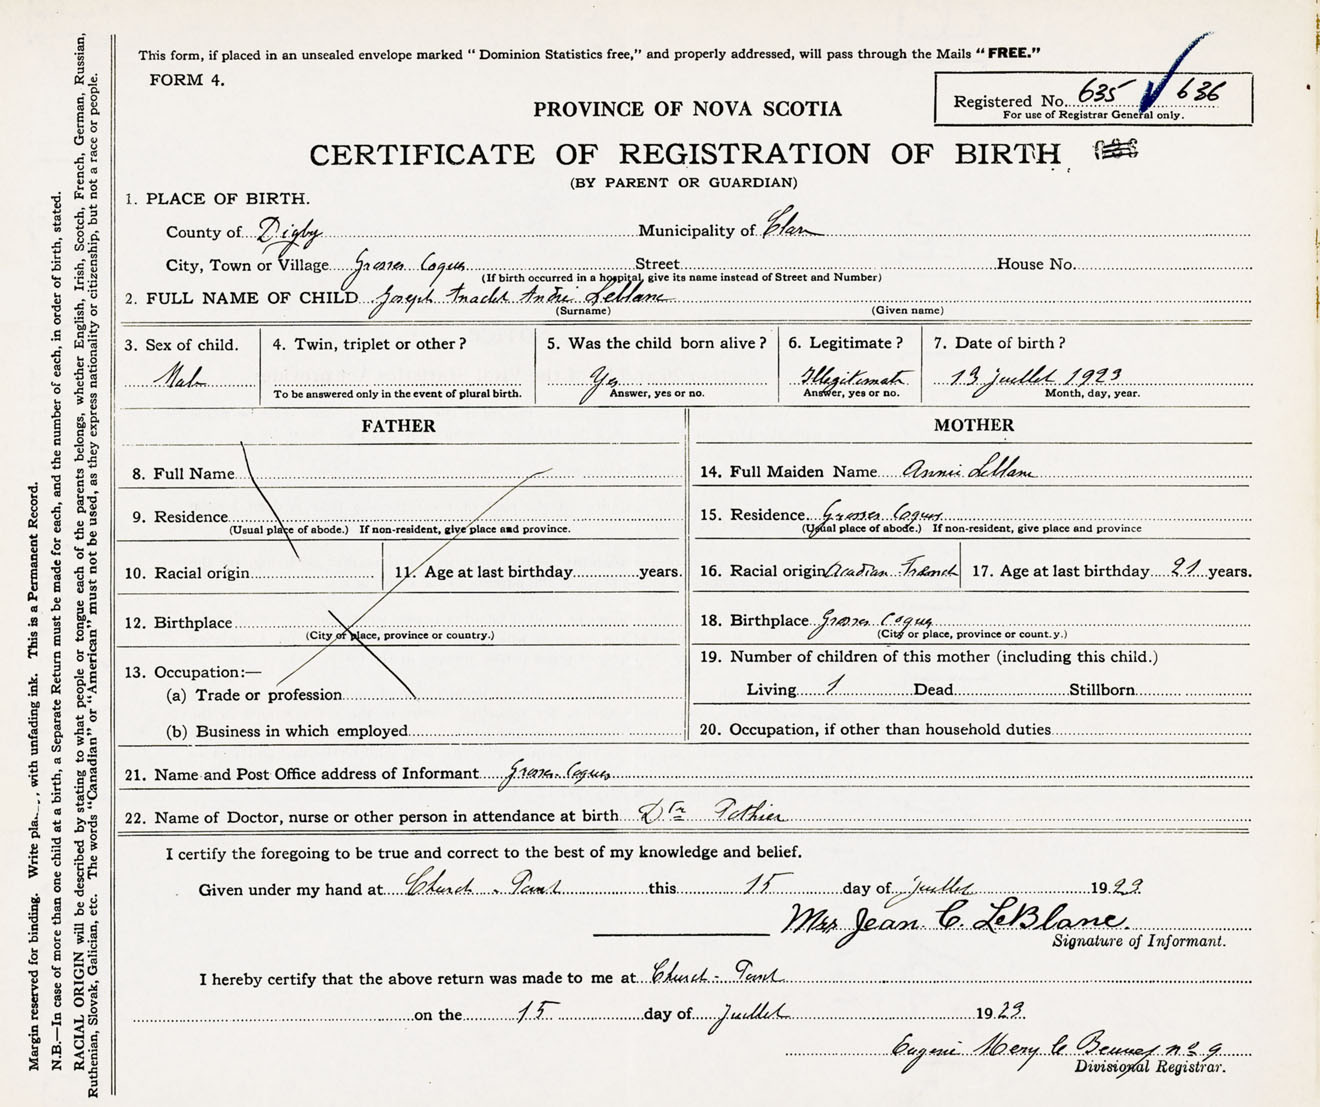 This form, if placed in an unsealed envelope marked "Dominion Statistics free," and properly addressed, will pass through the Mails "FREE."
FORM 4.
Registered No. 635 636
For use of Registrar General only.
PROVINCE OF NOVA SCOTIA
CERTIFICATE OF REGISTRATION OF BIRTH
(BY PARENT OR GUARDIAN)
1. PLACE OF BIRTH.
County of Digby Municipality of Clare
City, Town or Village Grosses Coques Street House No.
(If birth occurred in a hospital, give its name instead of Street and Number)
2. FULL NAME OF CHILD Joseph Anaclet André Leblanc
(Surname) (Given name)
3. Sex of child. 4. Twin, triplet or other? 5. Was the child born alive? 6. Legitimate? 7. Date of birth?
Male Yes Illegitimate 13 juillet 1923
To be answered only in the event of plural birth. Answer, yes or no. Answer, yes or no. Month, day, year.
FATHER MOTHER
8. Full Name 14. Full Maiden Name Annie Leblanc
9. Residence 15. Residence Grosses Coques
(Usual place of abode.) If non-resident, give place and province. (Usual place of abode.) If non-resident, give place and province
10. Racial origin 11. Age at last birthday years. 16. Racial origin Acadian French 17. Age at last birthday 21 years.
12. Birthplace 18. Birthplace Grosses Coques
(City or place, province or country.) (City or place, province or count.y.)
19. Number of children of this mother (including this child.)
13. Occupation:—
(a) Trade or profession Living 1 Dead Stillborn
(b) Business in which employed 20. Occupation, if other than household duties
21. Name and Post Office address of Informant Grosses-Coques
22. Name of Doctor, nurse or other person in attendance at birth Dr Pothier
I certify the foregoing to be true and correct to the best of my knowledge and belief.
Given under my hand at Church-Point this 15 day of juillet 1923
Mrs Jean C. LeBlanc.
Signature of Informant.
I hereby certify that the above return was made to me at Church-Point
on the 15 day of Juillet 1923.
Eugenie no 9
Divisional Registrar.
Margin reserved for binding. Write with unfading ink. This is a Permanent Record.
N.B.—In case of more than one child at a birth, a Separate Return must be made for each, and the number of each, in order of birth, stated.
RACIAL ORIGIN will be described by stating to what people or tongue each of the parents belongs, whether English, Irish, Scotch, French, German, Russian,
Ruthenian, Slovak, Galician, etc. The words "Canadian" or "American" must not be used, as they express nationality or citizenship, but not a race or people.